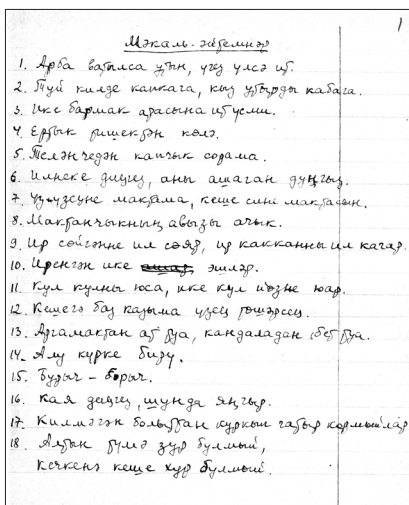 1
Мәкаль-әйтемнәр
1. Арба ватылса утын, үгез үлсә ит.
2. Туй килде капкага, кыз утырды кабага.
3. Ике бармак арасына ит үсми.
4. Ертык ишектән көлә.
5. Теләнчедән капчык сорама.
6. Илнеке диңгез, аны ашаган дуңгыз.
7. Үз-үзеңне мактама, кеше сине мактасын.
8. Мактанчыкның авызы ачык.
9. Ир сөйгәнне ил сөяр, ир какканны ил кагар.
10. Иренгән ике эшләр.
11. Кул кулны юса, ике кул йөзне юар.
12. Кешегә баз казыма үзең төшәрсең.
13. Аргамактан ат туа, кандаладан бет туа.
14. Алу күрке бирү.
15. Бурыч - борыч.
16. Кая диңгез, шунда яңгыр.
17. Килмәгән болыттан куркып чатыр кормыйлар
18 Алтын түмә зур булмый,
Кечкенә кеше хур булмый.